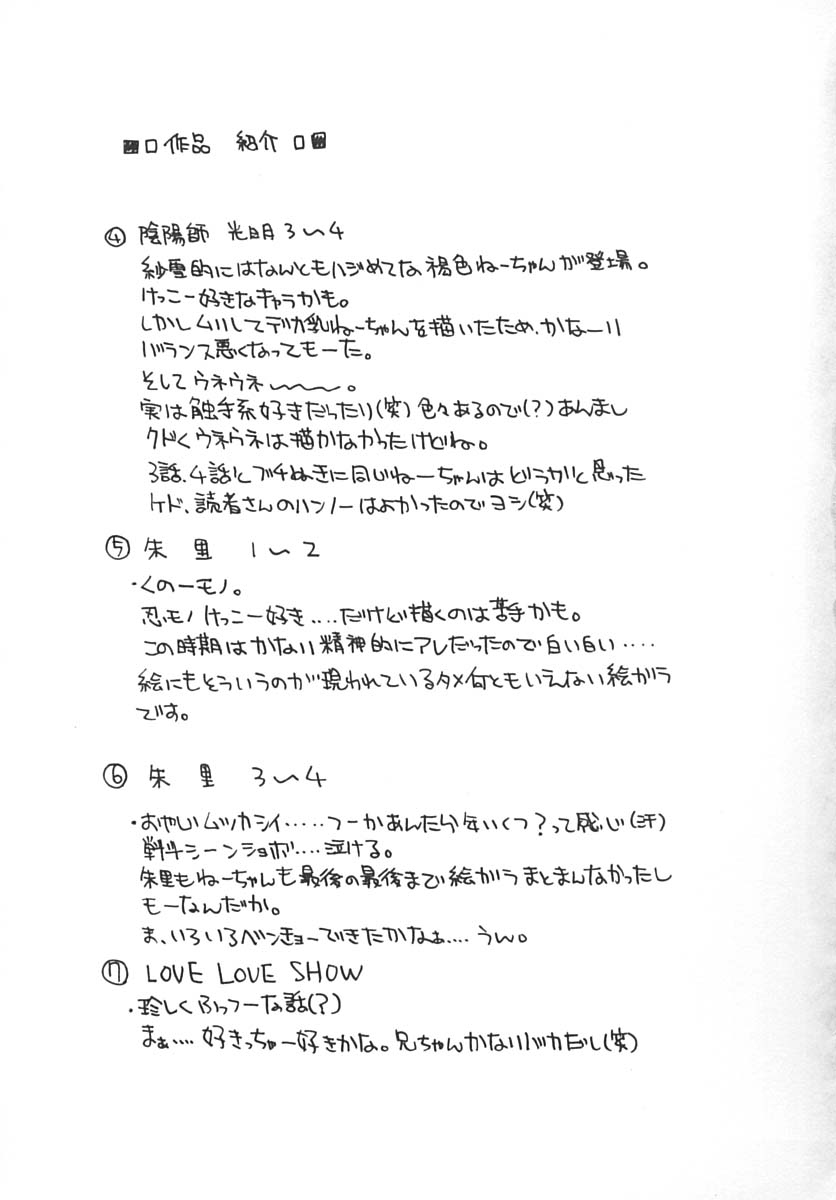 ■□作品 紹介□■
④ 陰陽師 光明 3〜4
紗雪的にはなんともハジめてな褐色ねーちゃんが登場。
けっこー好きなキャラかも。
しかしムリしてデカ乳ねーちゃんを描いたため、かなーリ
バランス悪くなってもーた。
そして ウネウネ〜〜〜。
実は触手系好きだったり(笑)色々あるので(?)あんまし
クドくウネウネは描かなかったけどね。
3話、4話とブチぬきに同じねーちゃんはどうかと思った
ケド、読者さんのハンノーはよかったのでヨシ(笑)
⑤ 朱 里 1〜2
・くの一モノ。
忍モノけっこー好き‥‥だけど描くのは苦手かも。
この時期はかなり精神的にアレだったので白い白い‥‥
絵にもそういうのが現われているタメ何ともいえない絵がう
です。
⑥ 朱 里 3〜4
・おやじムツカシイ‥‥‥つーかあんたら年いくつ?って感じ(汗)
戦斗シーンショボ‥‥泣ける。
朱里もねーちゃんも最後の最後まで絵がうまとまんなかったし
もーなんだか。
ま、いろいろベンキョーできたかなぁ‥‥うん。
⑦ LOVE LOVE SHOW
・珍しくふっつーな話(?)
まぁ‥‥好きっちゃー好きかな。兄ちゃんかなりバカだし(笑)